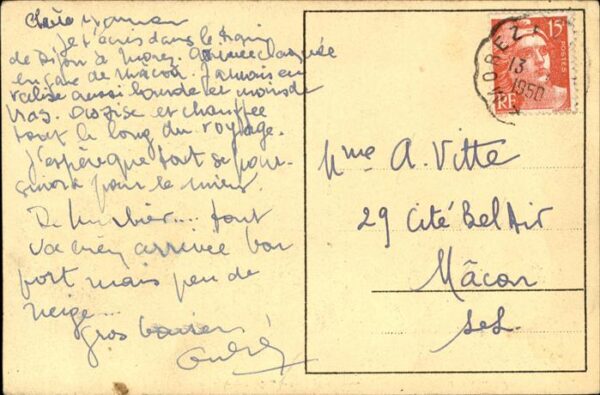 Chère Maman
Je t'écris dans le train
de Dijon à Morez.
en gare de Mâcon. J'avais en
valise aussi lourde et moins de
bras. Assise et chauffée
tout le long du voyage.
J'espère que tout se pour-
suivra pour le mieux.
De Morbier.... tout
va bien arrivée bon
port mais peu de
neige...
Gros baisers
André
15F
POSTES
RF
MOREZ
13
1950
Mme A. Vitte
29 Cité Bel Air
Mâcon
S&L.